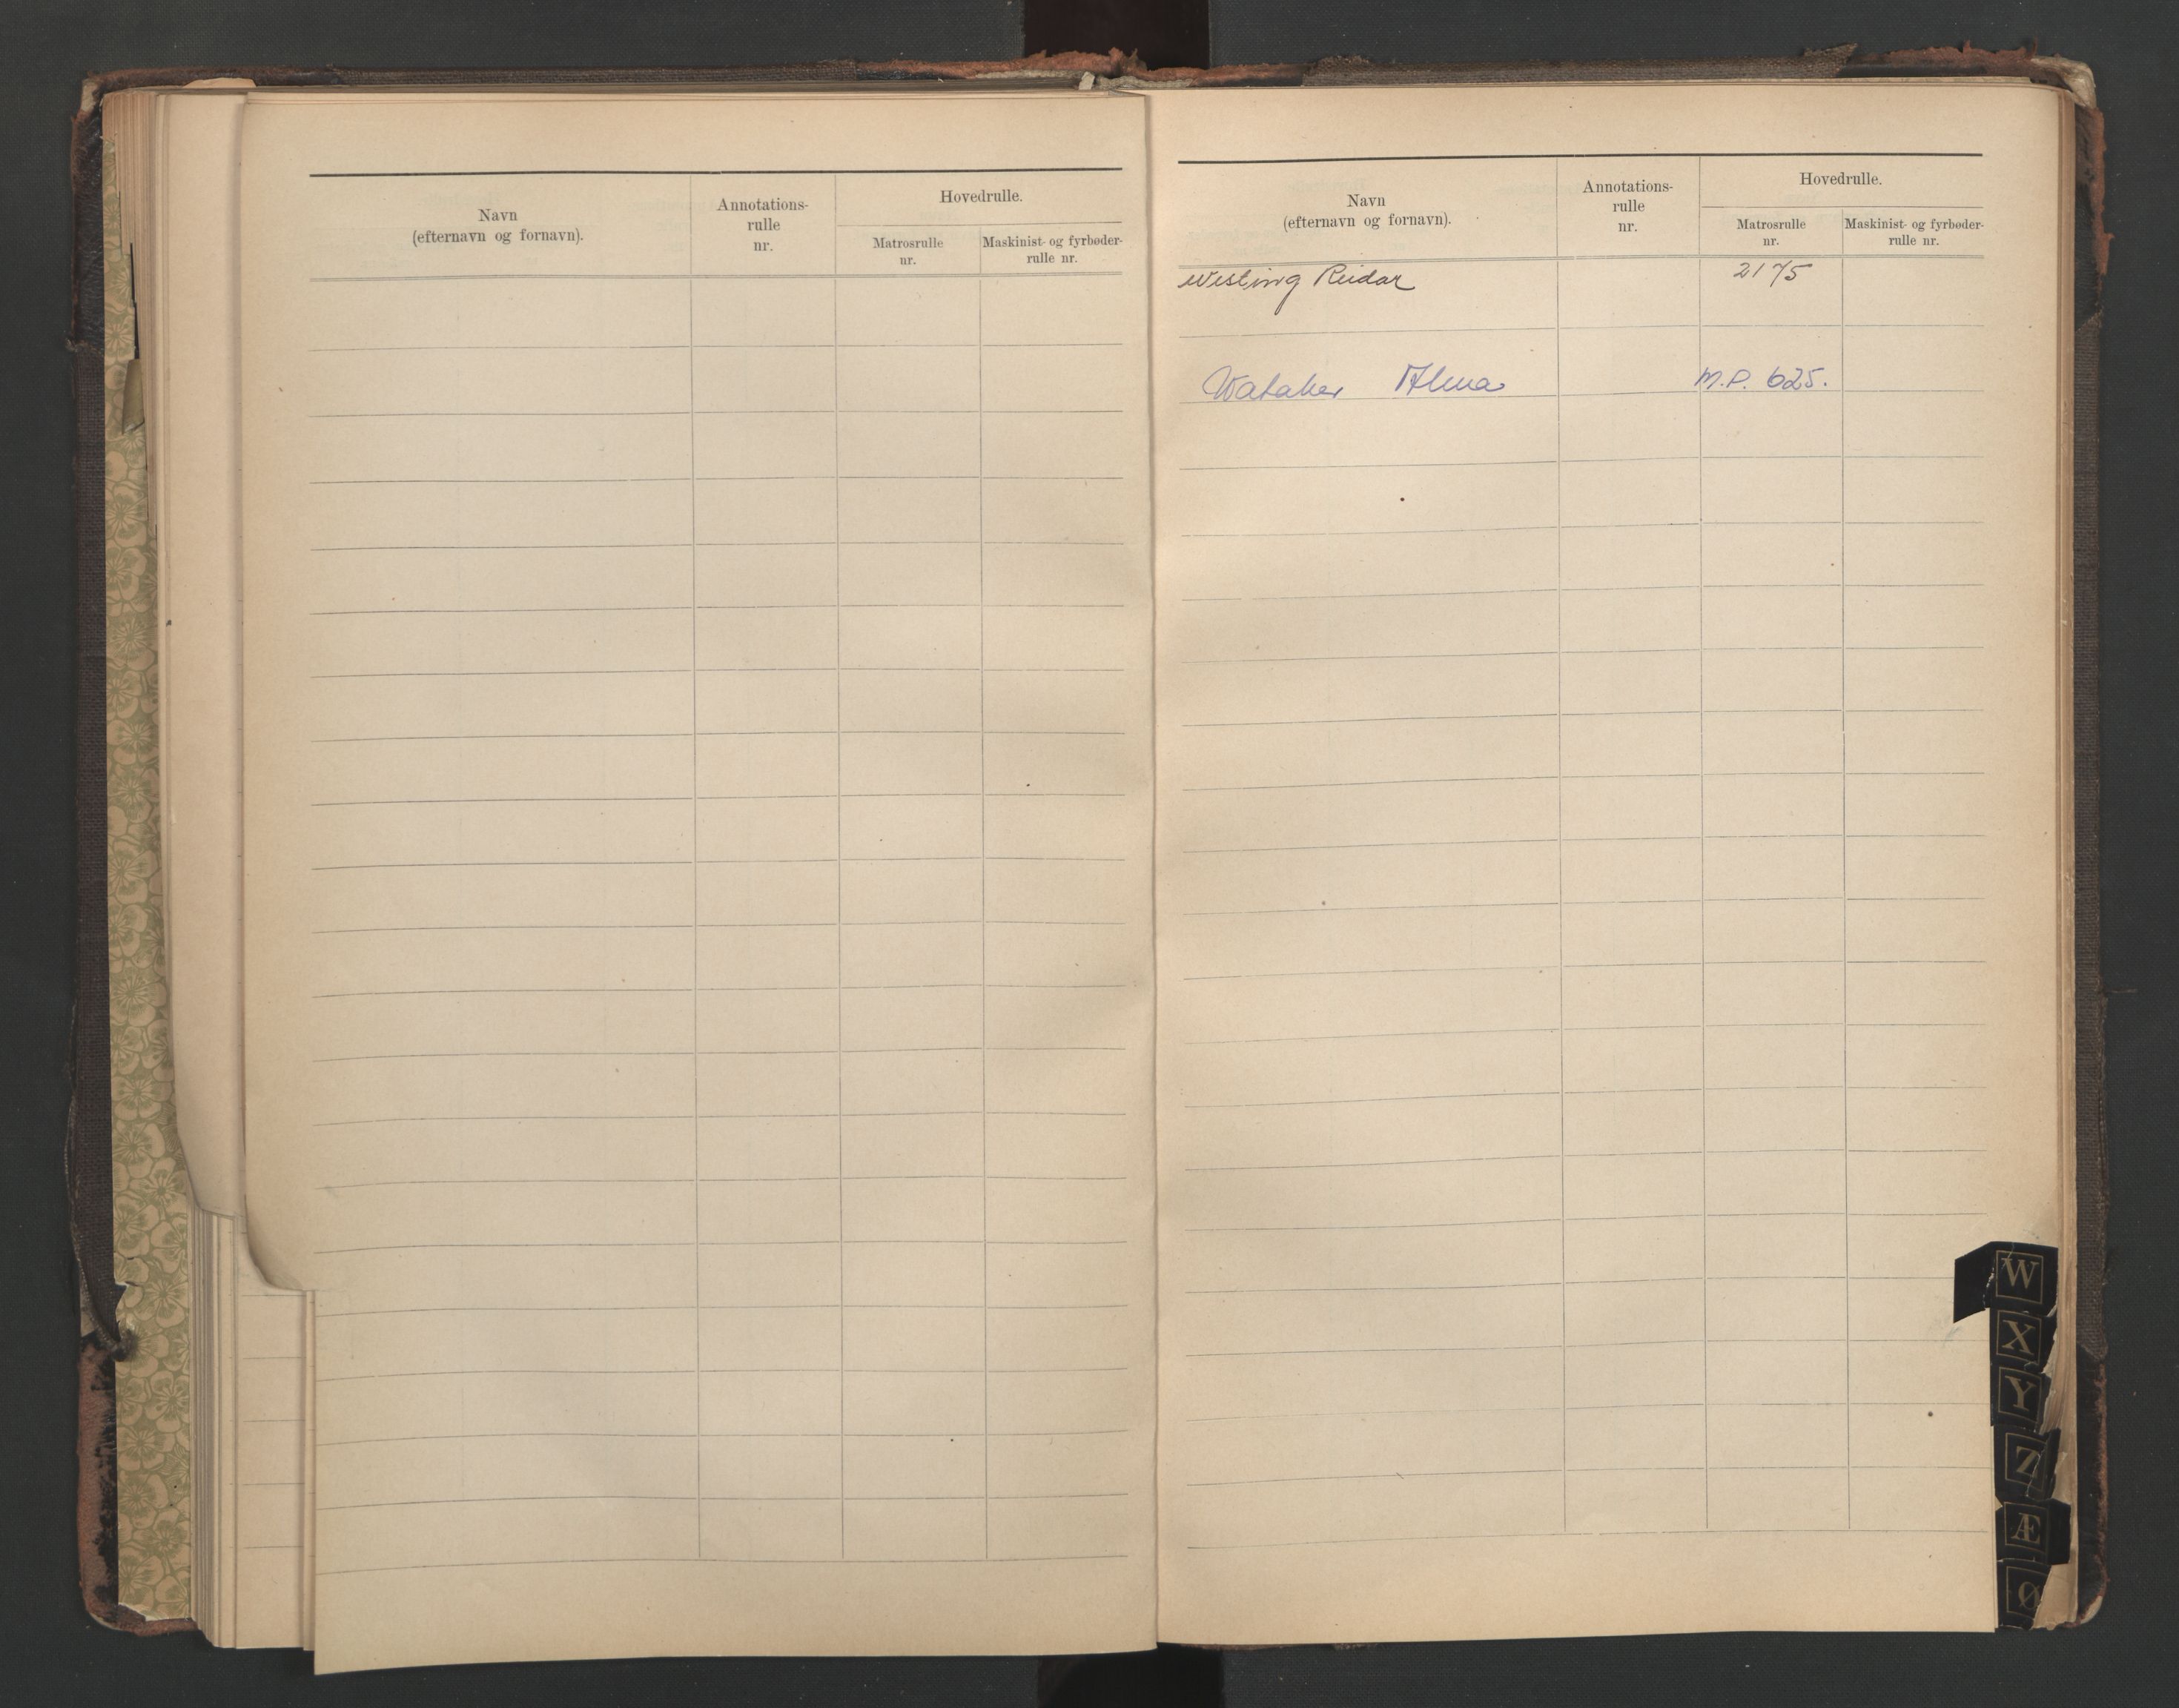 Navn
(efternavn og fornavn).
Annotations-
rulle
nr.
Hovedrulle.
Matrosrulle
nr.
Maskinist- og fyrbøder-
rulle nr.
Navn
(efternavn og fornavn).
Annotations-
rulle
nr.
Hovedrulle.
Matrosrulle
nr.
Maskinist- og fyrbøder-
rulle nr.
Westing Reidar 2175
Alma M.P. 625.
W
X
Y
Z
Æ
Ø